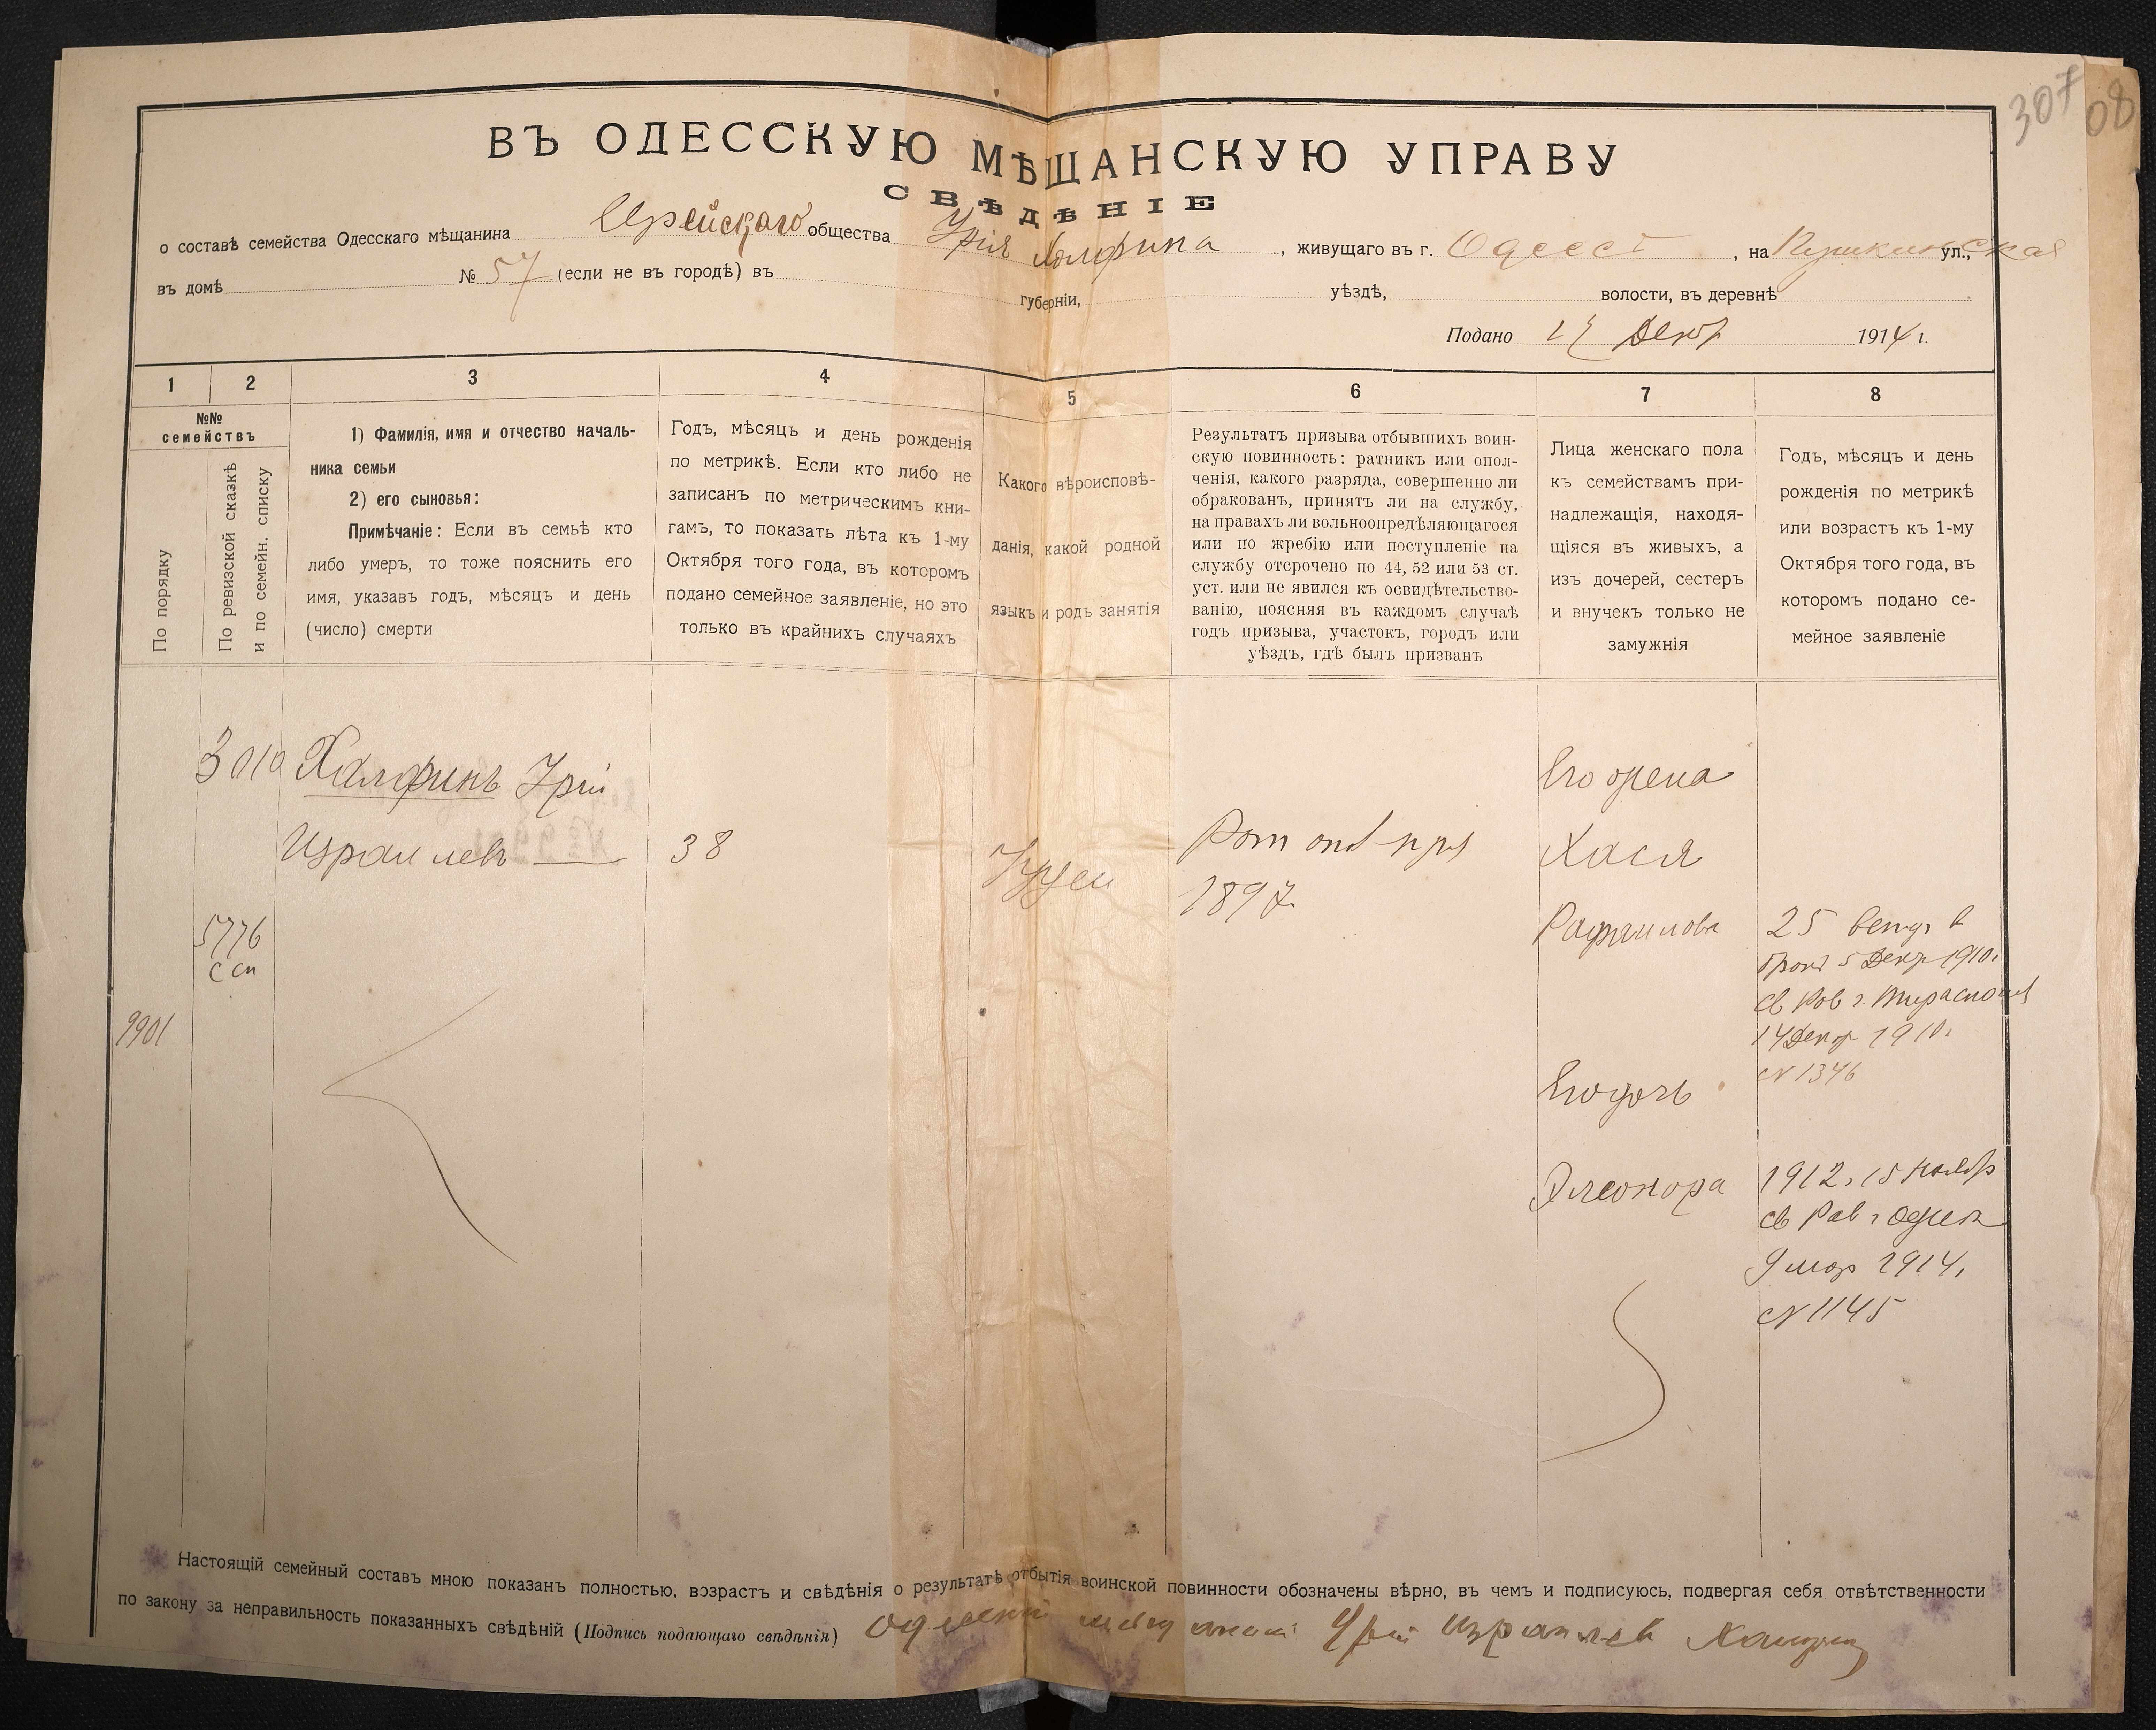 307
08
ВЪ ОДЕССКУЮ МѢЩАНСКУЮ УПРАВУ
СВѢДѢНІЕ
о составѣ семейства Одесскаго мѣщанина общества Урія Халфина, живущаго въ г. Одессѣ, на Пушкинская ул.,
въ домѣ № 57 (если не въ городѣ) въ губерніи, уѣздѣ, волости, въ деревнѣ
Подано Декб 1914 г.
1 2 3 4 5 6 7 8
№№
семействъ
По порядку
По ревизской сказкѣ
и по семейн. списку
1) Фамилія, имя и отчество началь-
ника семьи
2) его сыновья:
Примѣчаніе: Если въ семьѣ кто
либо умеръ, то тоже пояснить его
имя, указавъ годъ, мѣсяцъ и день
(число) смерти
Годъ, мѣсяцъ и день рожденія
по метрикѣ. Если кто либо не
записанъ по метрическимъ кни-
гамъ, то показать лѣта къ 1-му
Октября того года, въ которомъ
подано семейное заявленіе, но это
только въ крайнихъ случаяхъ
Какого вѣроисповѣ-
данія, какой родной
языкъ и родъ занятія
Результатъ призыва отбывшихъ воин-
скую повинность: ратникъ или опол-
ченія, какого разряда, совершенно ли
обракованъ, принятъ ли на службу,
на правахъ ли вольноопредѣляющагося
или по жребію или поступленіе на
службу отсрочено по 44, 52 или 53 ст.
уст. или не явился къ освидѣтельство-
ванію, поясняя въ каждомъ случаѣ
годъ призыва, участокъ, городъ или
уѣздъ, гдѣ былъ призванъ
Лица женскаго пола
къ семействамъ при-
надлежащія, находя-
щіяся въ живыхъ, а
изъ дочерей, сестеръ
и внучекъ только не
замужнія
Годъ, мѣсяцъ и день
рожденія по метрикѣ
или возрастъ къ 1-му
Октября того года, въ
которомъ подано се-
мейное заявленіе
3010 Халфинъ Урій
Израилевъ
38
5776
с сп
9901
Іудей
1897
Его жена
Хася
Рафаилова
25 вступ в
бракъ 5 Декр 1910г
св Рав г. Тирасполя
14 Декр 1910г
№ 1346
Его дочь
Элеонора
1912г 15 Ноябр
св Рав г Одессы
9 мар 1914г
№ 1145
Настоящій семейный составъ мною показанъ полностью, возрастъ и свѣдѣнія о результатѣ отбытія воинской повинности обозначены вѣрно, въ чемъ и подписуюсь, подвергая себя отвѣтственности
по закону за неправильность показанныхъ свѣдѣній (Подпись подающаго свѣдѣнія) Одесскій мѣщанинъ Урій Израилевъ Халфинъ